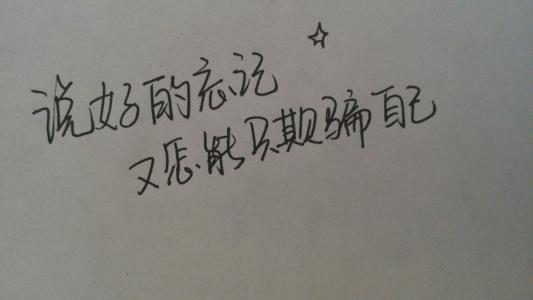 说好的忘记
又怎能只欺骗自己